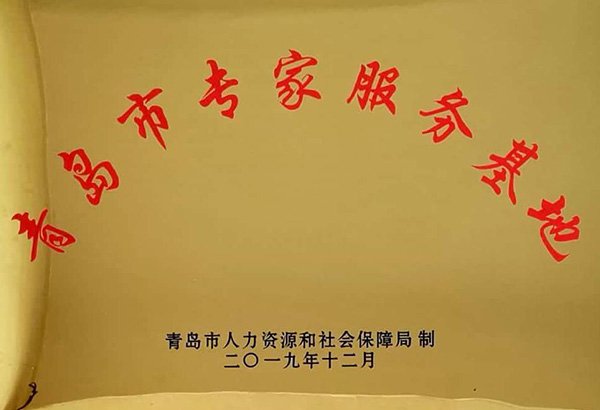 青岛市专家服务基地
青岛市人力资源和社会保障局 制
二〇一九年十二月